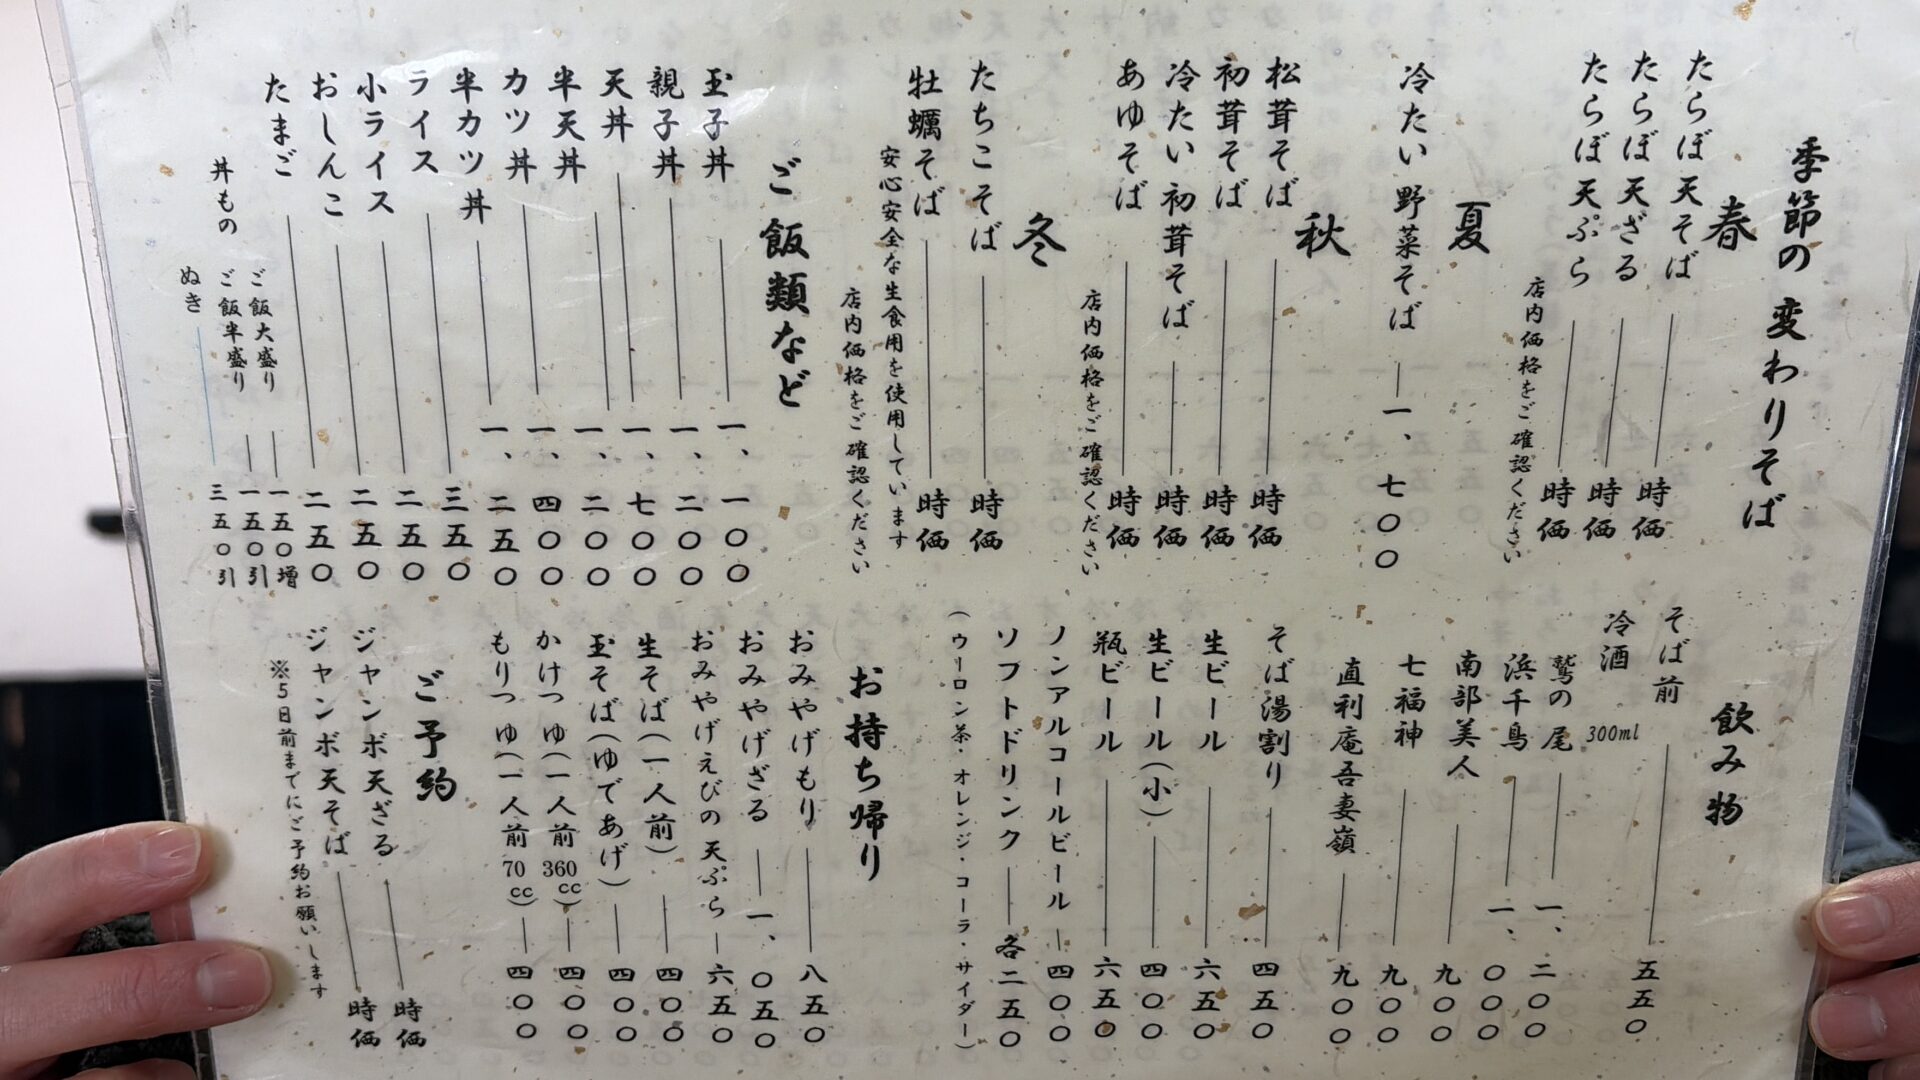 季節の変わりそば
春
たらぼ天そば 時価
たらぼ天ざる 時価
たらぼ天ぷら 時価
店内価格をご確認ください
夏
冷たい野菜そば 一、七〇〇
秋
松茸そば 時価
初茸そば 時価
冷たい初茸そば 時価
あゆそば 時価
店内価格をご確認ください
冬
たちこそば 時価
牡蠣そば 時価
安心安全な生食用を使用しています
店内価格をご確認ください
ご飯類など
玉子丼 一、一〇〇
親子丼 一、二〇〇
天丼 一、七〇〇
半天丼 一、二〇〇
カツ丼 一、四〇〇
半カツ丼 一、二五〇
ライス 三五〇
小ライス 二五〇
おしんこ 二五〇
たまご 二五〇
丼もの
ご飯大盛り 一五〇増
ご飯半盛り 一五〇引
ぬき 三五〇引
飲み物
そば前 五五〇
冷酒 300ml
鷲の尾 一、二〇〇
浜千鳥 一、〇〇〇
南部美人 九〇〇
七福神 九〇〇
直利庵吾妻嶺 九〇〇
そば湯割り 四五〇
生ビール 六五〇
生ビール(小) 四〇〇
瓶ビール 六五〇
ノンアルコールビール 四〇〇
ソフトドリンク 各二五〇
(ウーロン茶・オレンジ・コーラ・サイダー)
お持ち帰り
おみやげもり 八五〇
おみやげざる 一、〇五〇
おみやげえびの天ぷら 六五〇
生そば(一人前) 四〇〇
玉そば(ゆであげ) 四〇〇
かけつゆ(一人前360cc) 四〇〇
もりつゆ(一人前70cc) 四〇〇
ご予約
ジャンボ天ざる 時価
ジャンボ天そば 時価
※5日前までにご予約お願いします